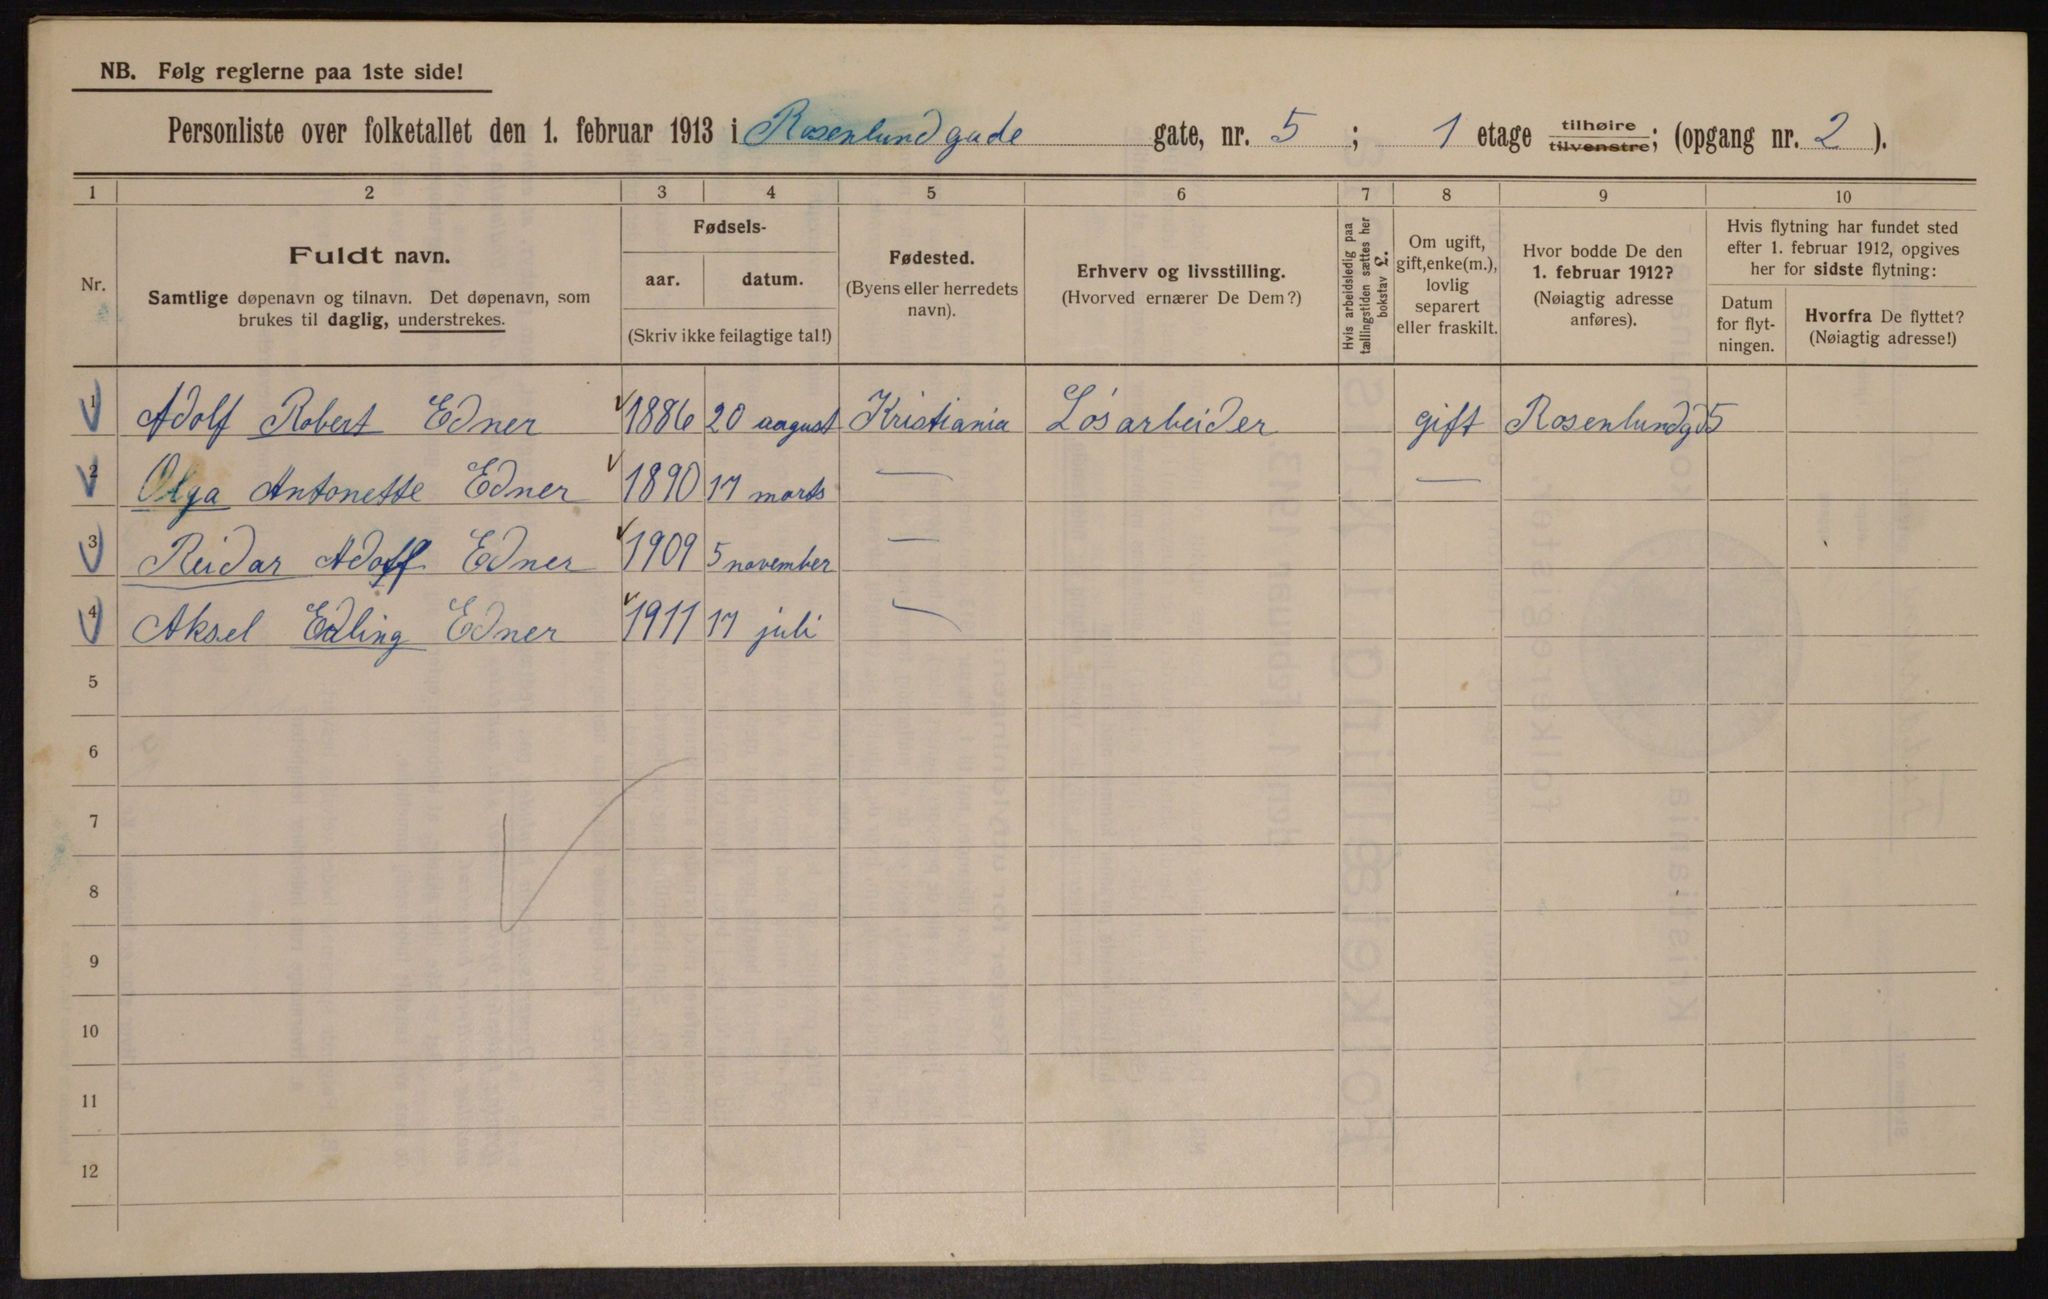 NB. Følg reglerne paa 1ste side!
Personliste over folketallet den 1. februar 1913 i Rosenlundgade gate, nr. 5 ; 1 etage tilhøire tilvenstre; (opgang nr. 2 ).
1 2 3 4 5 6 7 8 9 10
Nr.
Fuldt navn.
Samtlige døpenavn og tilnavn. Det døpenavn, som
brukes til daglig, understrekes.
Fødsels-
aar. datum.
(Skriv ikke feilagtige tal!)
Fødested.
(Byens eller herredets
navn).
Erhverv og livsstilling.
(Hvorved ernærer De Dem?)
Hvis arbeidsledig paa
tællingstiden sættes her
bokstav L.
Om ugift,
gift, enke(m.),
lovlig
separert
eller fraskilt.
Hvor bodde De den
1. februar 1912?
(Nøiagtig adresse
anføres).
Hvis flytning har fundet sted
efter 1. februar 1912, opgives
her for sidste flytning:
Datum
for flyt-
ningen.
Hvorfra De flyttet?
(Nøiagtig adresse!)
1 Adolf Robert Edner 1886 20 august Kristiania Løsarbeider gift Rosenlundgd 5
2 Olga Antonette Edner 1890 17 marts — —
3 Reidar Adolf Edner 1909 5 november —
4 Aksel Erling Edner 1911 17 juli —
5
6
7
8
9
10
11
12